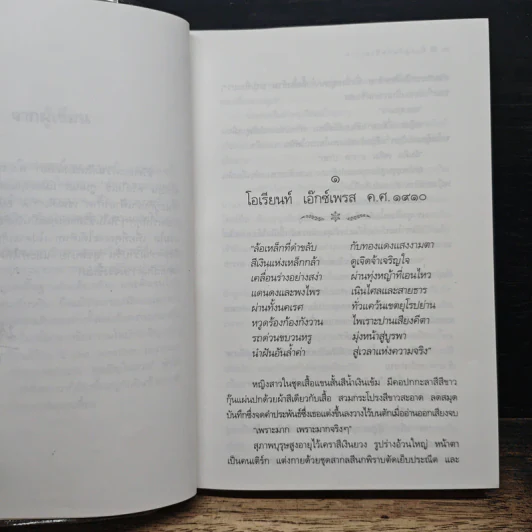 ๑
โอเรียนท์ เอ๊กซ์เพรส ค.ศ.๑๙๑๐
"ล้อเหล็กที่ดำขลับ กับทองแดงแสงงามตา
สีเงินแห่งเหล็กกล้า ดูเจิดจ้าเจริญใจ
เคลื่อนร่างอย่างสง่า ผ่านทุ่งหญ้าที่เอนไหว
แดนดงและพงไพร เนินไศลและสายธาร
ผ่านทั้งนคเรศ ทั่วแคว้นเขตยุโรปย่าน
หวูดร้องก้องกังวาน ไพเราะปานเสียงคีตา
รถด่วนขบวนหรู มุ่งหน้าสู่บูรพา
นำฝันอันล้ำค่า สู่เวลาแห่งความจริง"
หญิงสาวในชุดเสื้อแขนสั้นสีน้ำเงินเข้ม มีคอปกกะลาสีสีขาว
กุ๊นแผ่นปกด้วยผ้าสีเดียวกับเสื้อ สวมกระโปรงสีขาวสะอาด ลดสมุด
บันทึกซึ่งจดคำประพันธ์ที่ซึ่งเธอแต่งขึ้นลงวางไว้บนตักเมื่ออ่านออกเสียงจบ
"เพราะมาก เพราะมากจริงๆ"
สุภาพบุรุษสูงอายุไว้เคราสีเงินยวง รูปร่างอ้วนใหญ่ หน้าตา
เป็นคนเติร์ก แต่งกายด้วยชุดสากลสีนกพิราบตัดเย็บประณีต และ